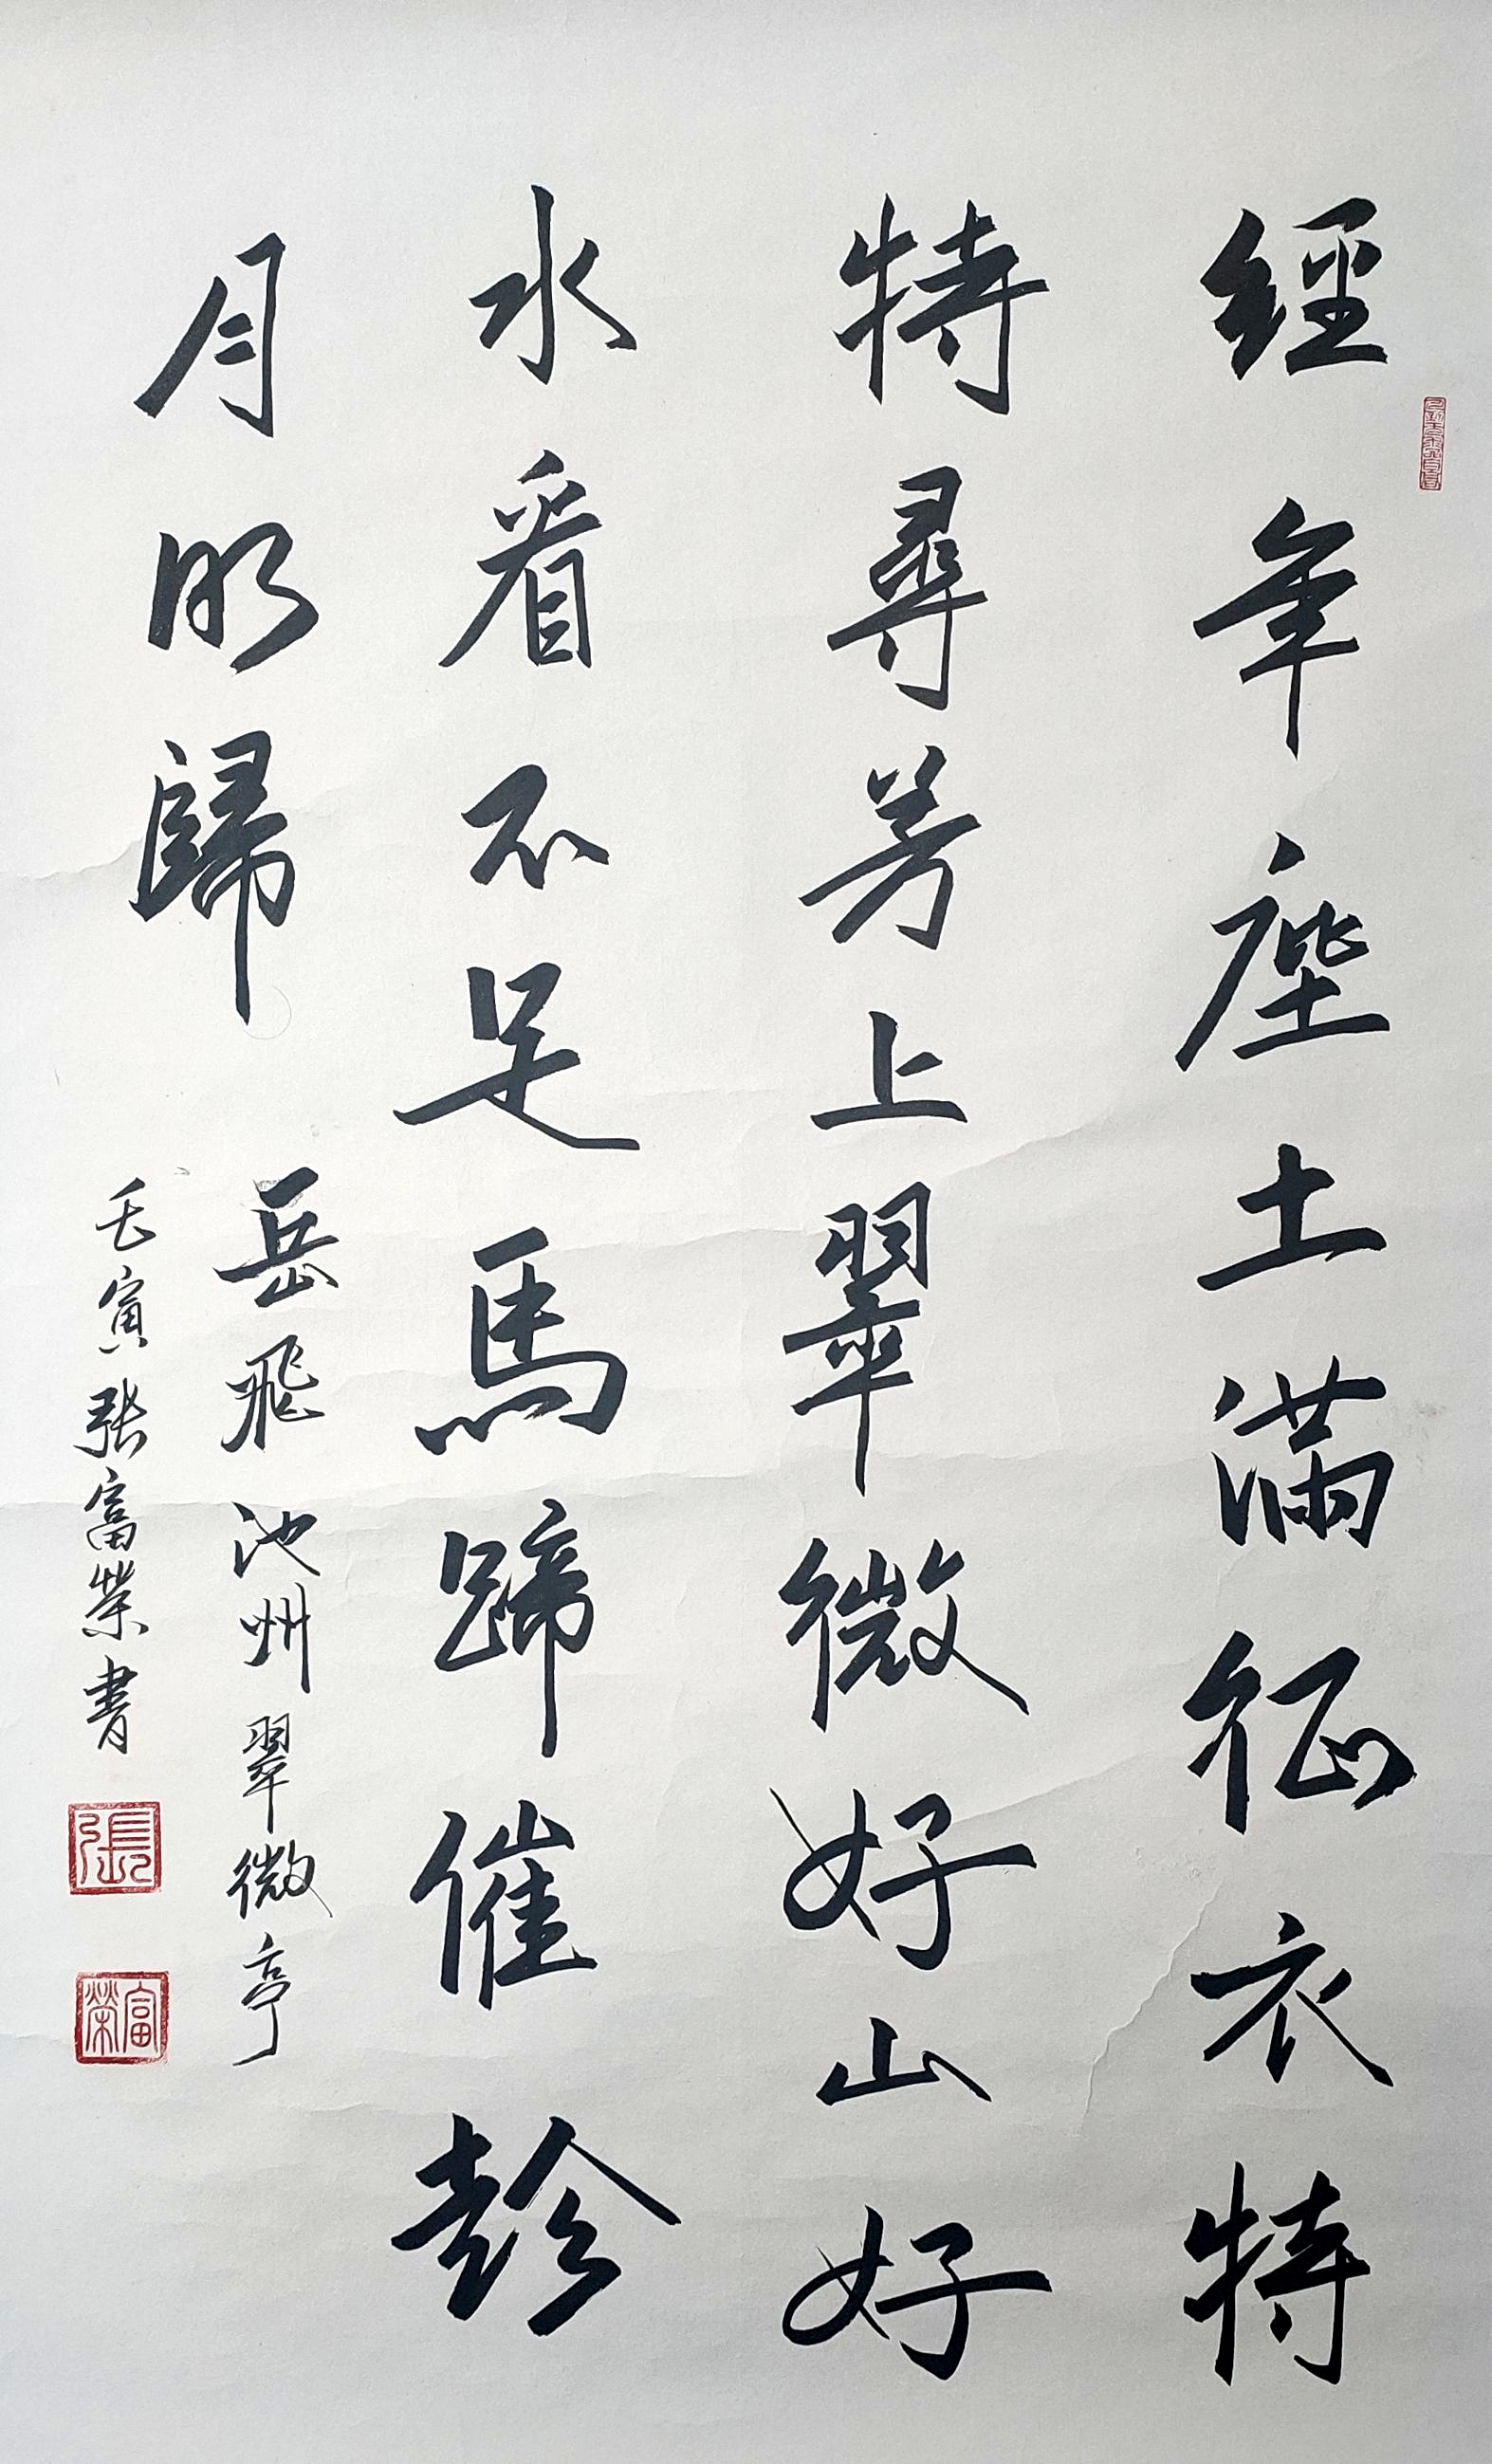 經年塵土滿征衣特
特尋芳上翠微好山好
水看不足馬蹄催趁
月明歸
岳飛池州翠微亭
壬寅张富荣書
張
富榮